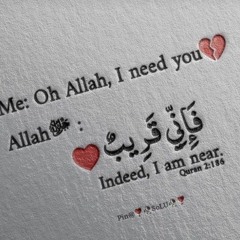 Me: Oh Allah, I need you💔
Allahﷻ :
❤️فَإِنِّي قَرِيبٌ
Indeed, I am near.
Quran 2:186